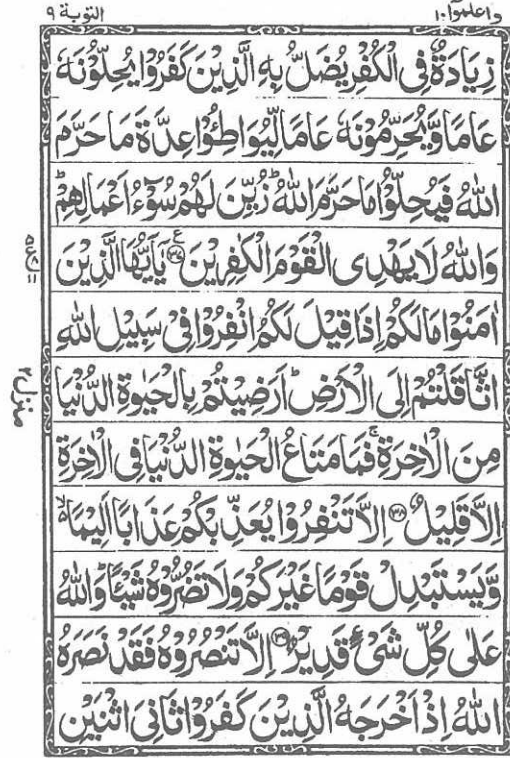 واعلموا ١٠
التوبة ٩
زِيَادَةٌ فِى الْكُفْرِ يُضَلُّ بِهِ الَّذِيْنَ كَفَرُوْا يُحِلُّوْنَهٗ
عَامًا وَّيُحَرِّمُوْنَهٗ عَامًا لِّيُوَاطِـُٔوْا عِدَّةَ مَا حَرَّمَ
اللّٰهُ فَيُحِلُّوْا مَا حَرَّمَ اللّٰهُ ؕ زُيِّنَ لَهُمْ سُوْٓءُ اَعْمَالِهِمْ ؕ
وَاللّٰهُ لَا يَهْدِى الْقَوْمَ الْكٰفِرِيْنَ ﴿٣٧﴾ ع يٰۤاَيُّهَا الَّذِيْنَ
اٰمَنُوْا مَا لَكُمْ اِذَا قِيْلَ لَكُمُ انْفِرُوْا فِىْ سَبِيْلِ اللّٰهِ
اثَّاقَلْتُمْ اِلَى الْاَرْضِ ؕ اَرَضِيْتُمْ بِالْحَيٰوةِ الدُّنْيَا
مِنَ الْاٰخِرَةِ ۚ فَمَا مَتَاعُ الْحَيٰوةِ الدُّنْيَا فِى الْاٰخِرَةِ
اِلَّا قَلِيْلٌ ﴿٣٨﴾ اِلَّا تَنْفِرُوْا يُعَذِّبْكُمْ عَذَابًا اَلِيْمًا ۙ
وَّيَسْتَبْدِلْ قَوْمًا غَيْرَكُمْ وَلَا تَضُرُّوْهُ شَيْـًٔا ؕ وَاللّٰهُ
عَلٰى كُلِّ شَىْءٍ قَدِيْرٌ ﴿٣٩﴾ اِلَّا تَنْصُرُوْهُ فَقَدْ نَصَرَهُ
اللّٰهُ اِذْ اَخْرَجَهُ الَّذِيْنَ كَفَرُوْا ثَانِىَ اثْنَيْنِ
منزل ٢